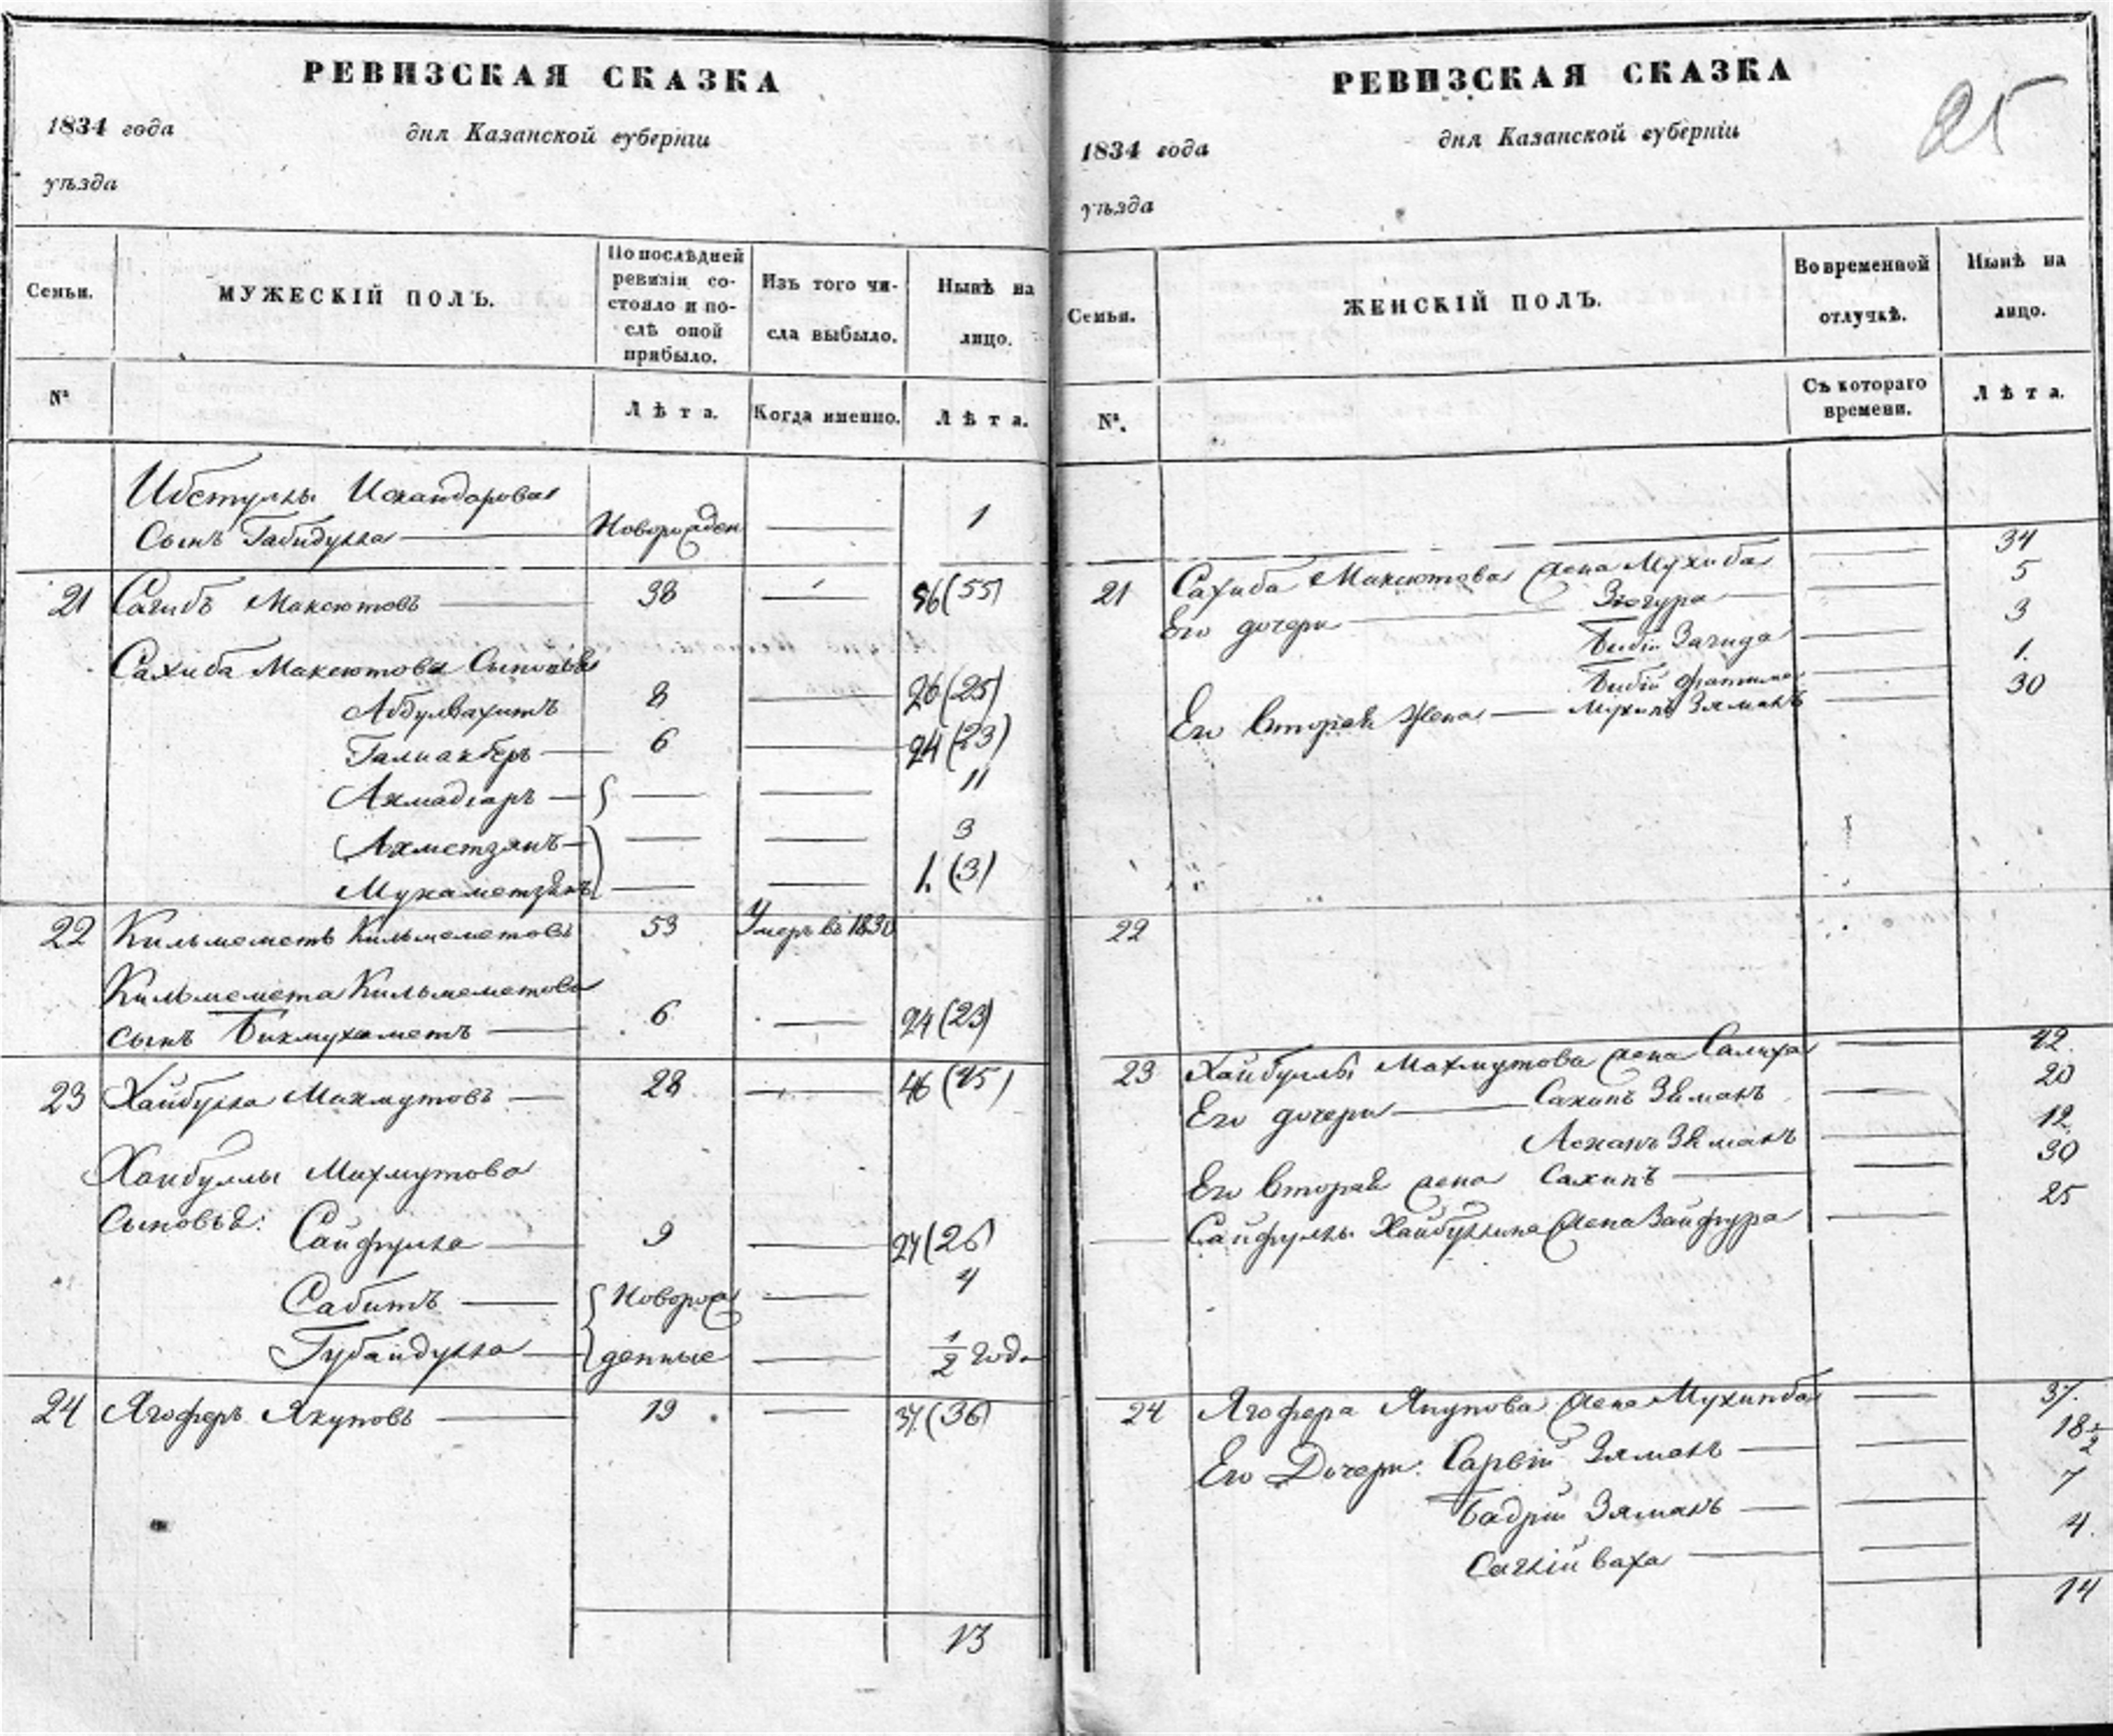 РЕВИЗСКАЯ СКАЗКА
1834 года дня Казанской губернiи
уѣзда
Семьи. МУЖЕСКІЙ ПОЛЪ. По послѣдней ревизіи состояло и послѣ оной прибыло. Изъ того числа выбыло. Нынѣ на лицо.
№ Лѣта. Когда именно. Лѣта.
Искандарова
сынъ Габидулла Новорожден 1
21 Сагибъ Максютовъ 38 56 (55)
Сахиба Максютова Сыновья
Абдулвахитъ 8 26 (25)
Галиакберъ 6 24 (23)
Ахмадiаръ 11
Ахметзянъ 3
Мухаметзянъ 1. (3)
22 Кильмеметь Кильмеметовъ 53 Умеръ въ 1830
Кильмемета Кильмеметова
сынъ Бикмухаметъ 6 24 (23)
23 Хайбулла Махмутовъ 28 46 (45)
Хайбуллы Махмутова
Сыновья: Сайфулла 9 27 (26)
Сабитъ Новорож 4
Губайдулла денные 1/2 года
24 Ягоферъ Якуповъ 19 37. (36)
13
РЕВИЗСКАЯ СКАЗКА
25
1834 года дня Казанской губернiи
уѣзда
Семьи. ЖЕНСКІЙ ПОЛЪ. Во временной отлучкѣ. Нынѣ на лицо.
№. Съ котораго времени. Лѣта.
21 Сахиба Максютова жена Мухиба 34
Его дочери Зюгура 5
Бибiи Загида 3
Бибiи Фатима 1.
Его вторая жена Зяманъ 30
22
23 Хайбуллы Махмутова жена Салиха 42.
Его дочери Сахипъ Зяманъ 20
Асханъ Зяманъ 12.
Его вторая жена Сахипъ 30
Сайфуллы Хайбуллина жена Зайфура 25
24 Ягофера Якупова жена 37.
Его Дочери: Сарвiй Зяманъ 18 1/2
Бадрiй Зяманъ 7
4.
14